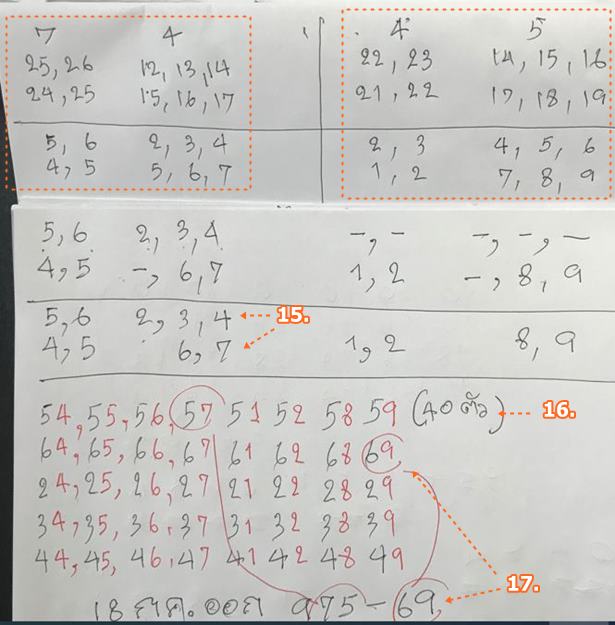 7 4 4 5
25, 26 12, 13, 14 22, 23 14, 15, 16
24, 25 15, 16, 17 21, 22 17, 18, 19
5, 6 2, 3, 4 2, 3 4, 5, 6
4, 5 5, 6, 7 1, 2 7, 8, 9
5, 6 2, 3, 4 -, - -, -, -
4, 5 -, 6, 7 1, 2 -, 8, 9
5, 6 2, 3, 4 15.
4, 5 6, 7 1, 2 8, 9
54, 55, 56, 57 51 52 58 59 (40 ตัว) 16.
64, 65, 66, 67 61 62 68 69
24, 25, 26, 27 21 22 28 29
34, 35, 36, 37 31 32 38 39
44, 45, 46, 47 41 42 48 49
17.
18 ออก 975 - 69